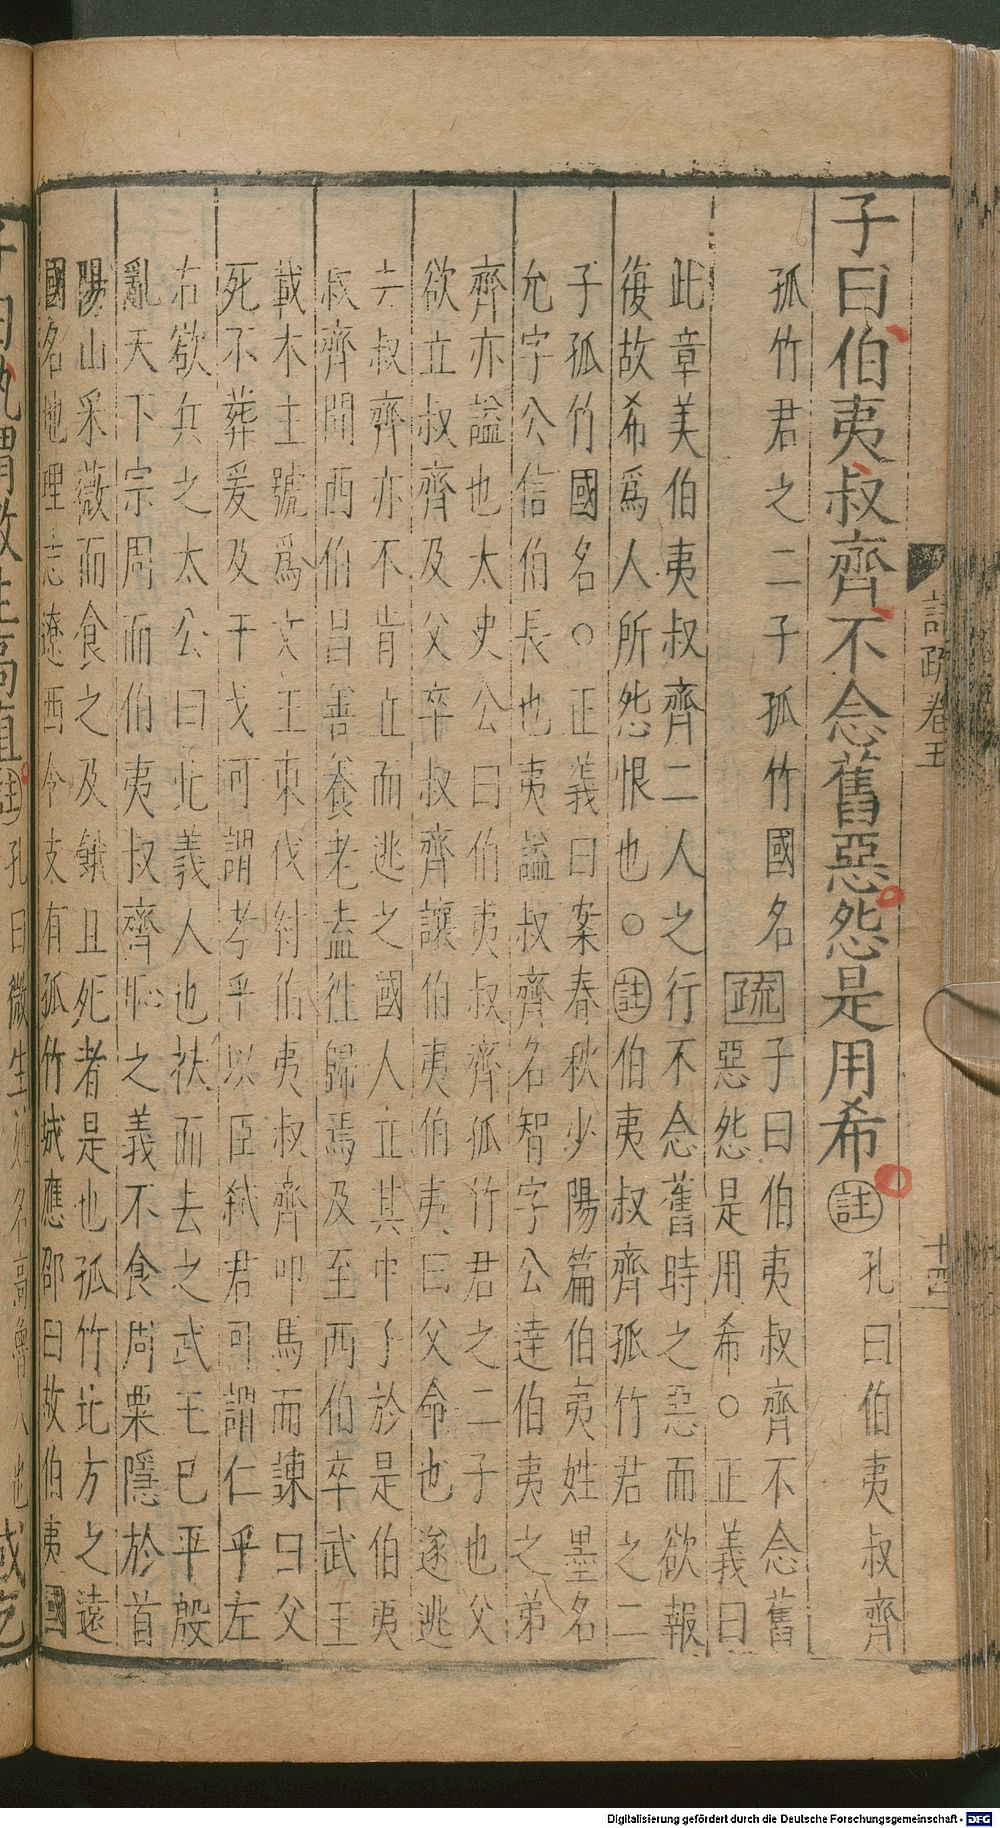 子曰伯夷叔齊不念舊惡怨是用希註孔曰伯夷叔齊
孤竹君之二子孤竹國名疏子曰伯夷叔齊不念舊
惡怨是用希○正義曰
此章美伯夷叔齊二人之行不念舊時之惡而欲報
復故希爲人所怨恨也○註伯夷叔齊孤竹君之二
子孤竹國名○正義曰案春秋少陽篇伯夷姓墨名
允字公信伯長也夷謚叔齊名智字公達伯夷之弟
齊亦謚也太史公曰伯夷叔齊孤竹君之二子也父
欲立叔齊及父卒叔齊讓伯夷伯夷曰父命也遂逃
去叔齊亦不肯立而逃之國人立其中子於是伯夷
叔齊聞西伯昌善養老盍徃歸焉及至西伯卒武王
載木主號爲文王東伐紂伯夷叔齊叩馬而諫曰父
死不葬爰及干戈可謂孝乎以臣弑君可謂仁乎左
右欲兵之太公曰此義人也扶而去之武王已平殷
亂天下宗周而伯夷叔齊恥之義不食周粟隱於首
陽山采薇而食之及餓且死者是也孤竹北方之遠
國名地理志遼西令支有孤竹城應邵曰故伯夷國
註疏卷五
十四
子曰孰謂微生高直註孔曰微生姓名高魯人也或乞
Digitalisierung gefördert durch die Deutsche Forschungsgemeinschaft - DFG